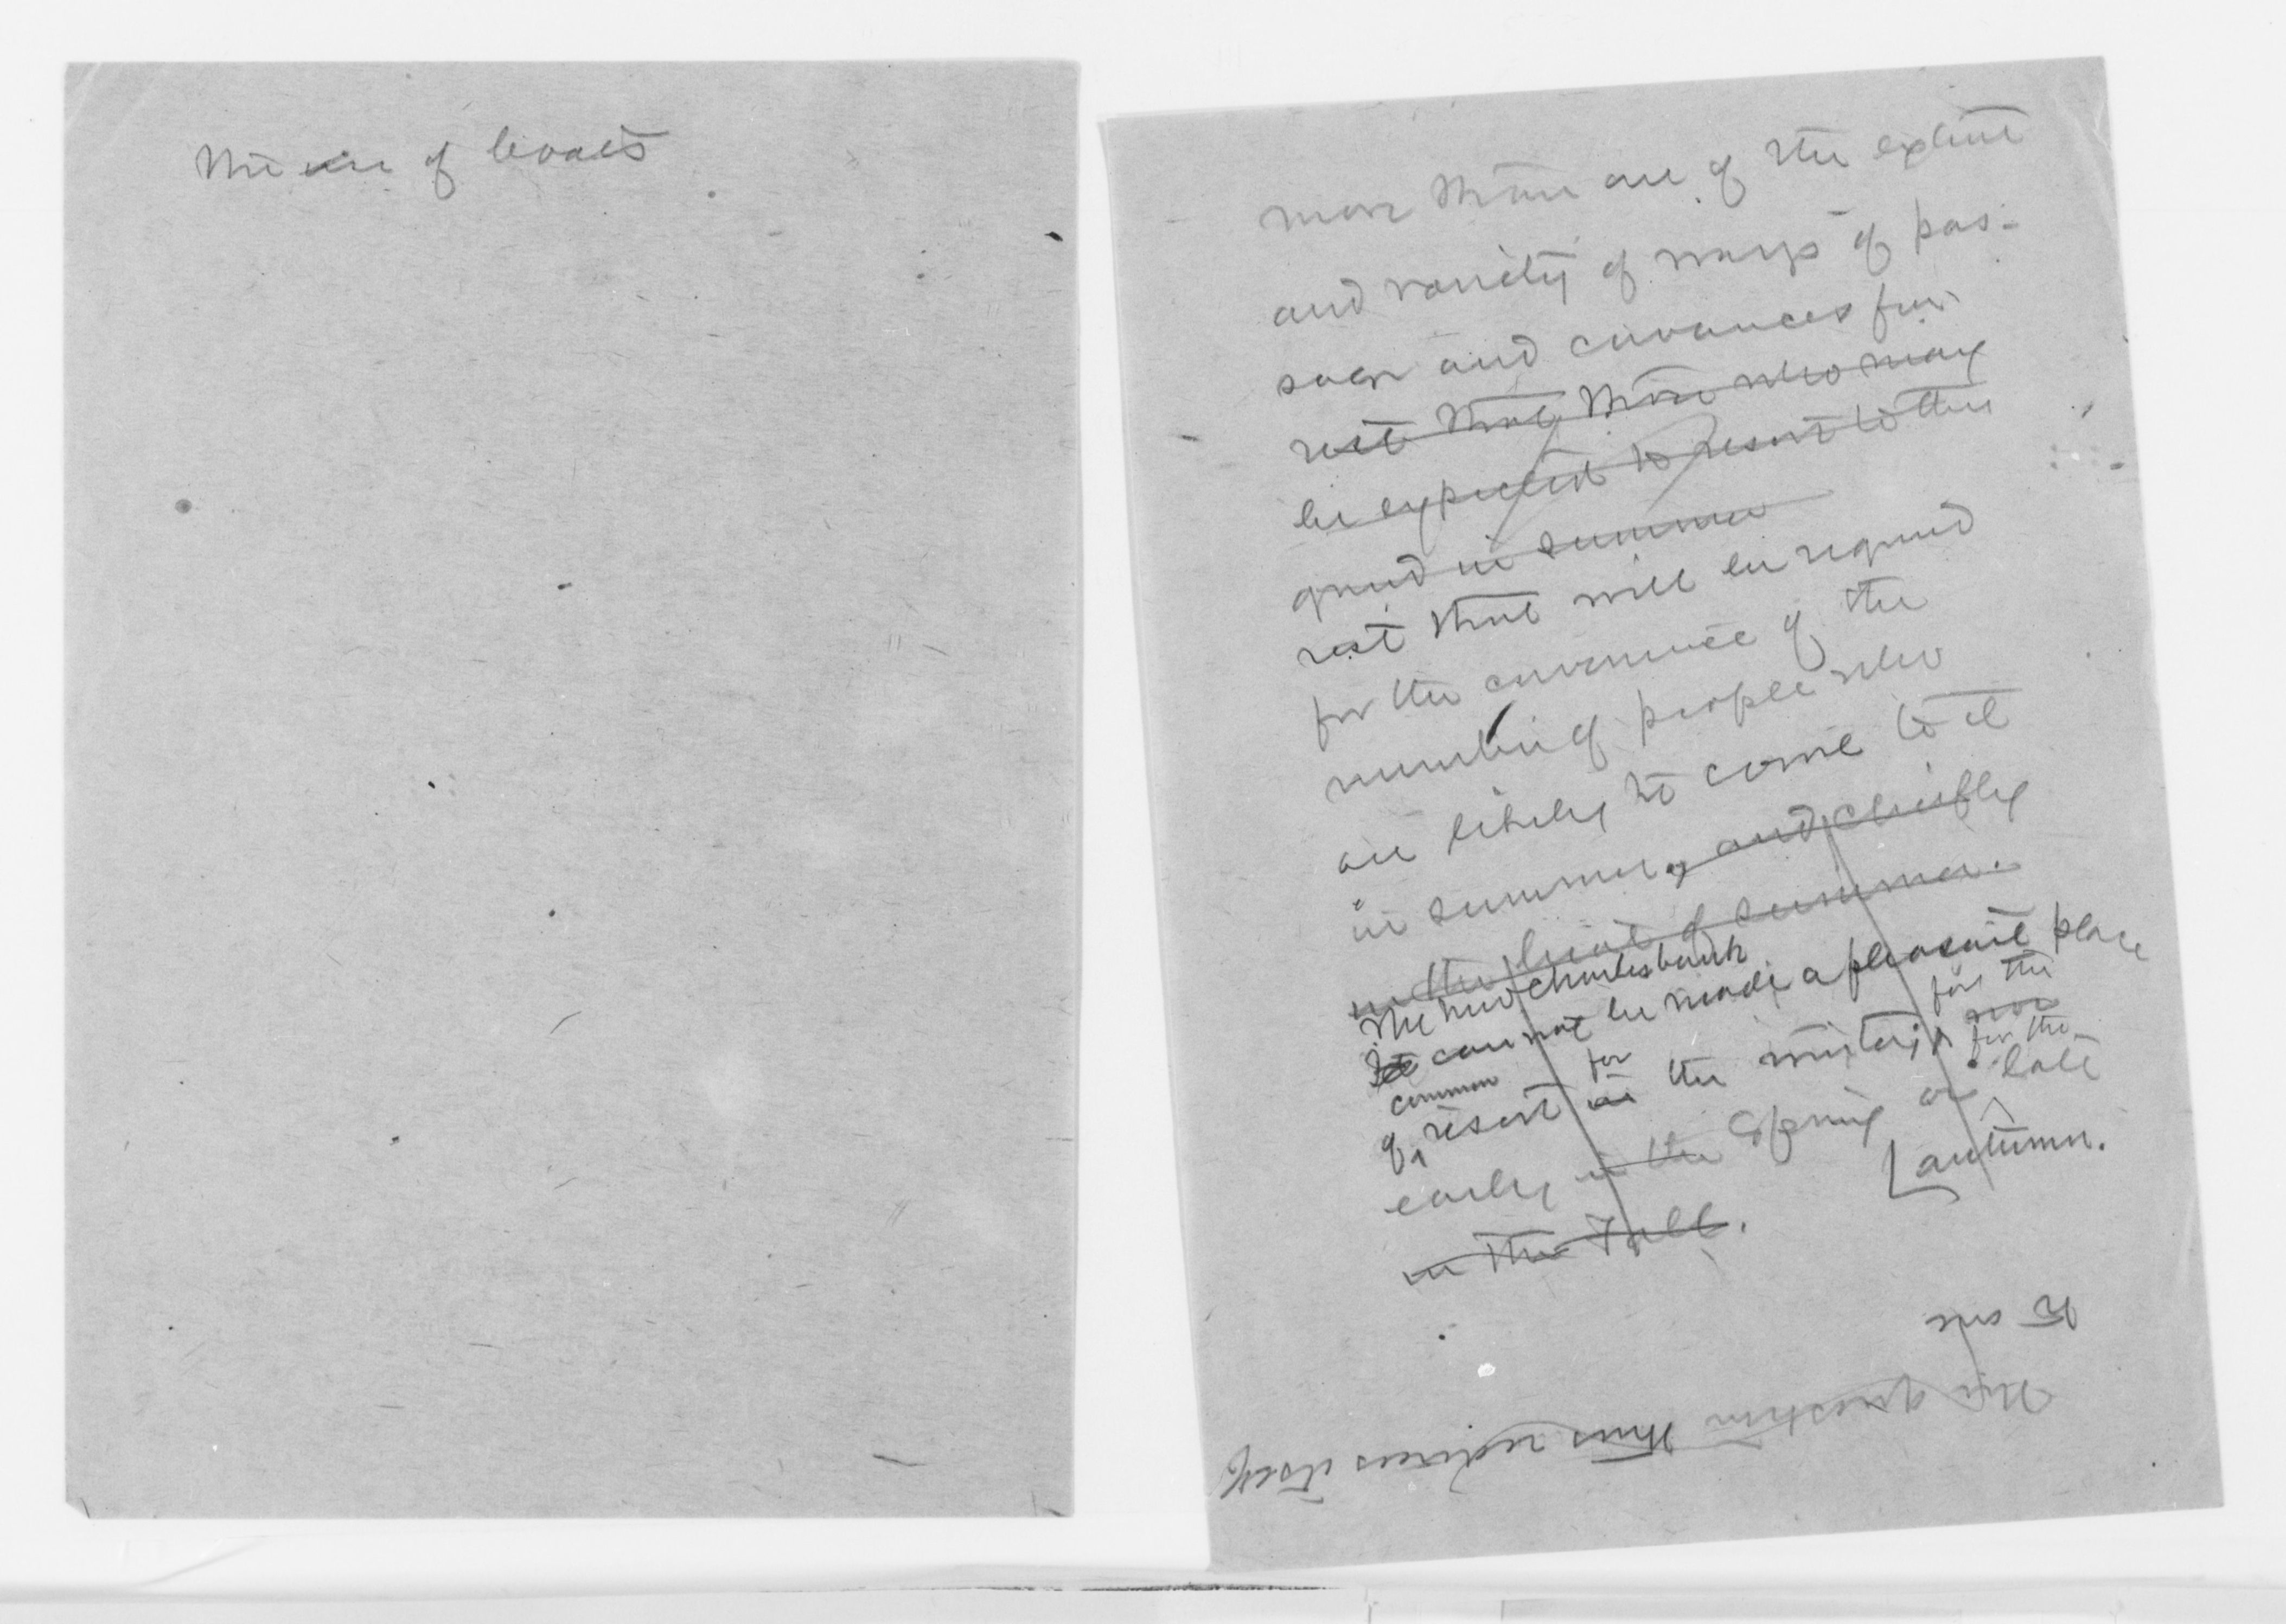 the use of boats
more than one of the extent
and variety of ways of pas-
sage and conveniences for
rest that those who may
be expected to resort to this
ground in summer
rest that will be required
for the convenience of the
number of people who
are likely to come to it
in summer, and chiefly
in the heat of summer.
The new Charlesbank
It cannot be made a pleasant place
for the
common for nor for the
of resort in the winter,
early in the Spring or late
autumn.
in the Fall.
to me
The question thus reduces itself